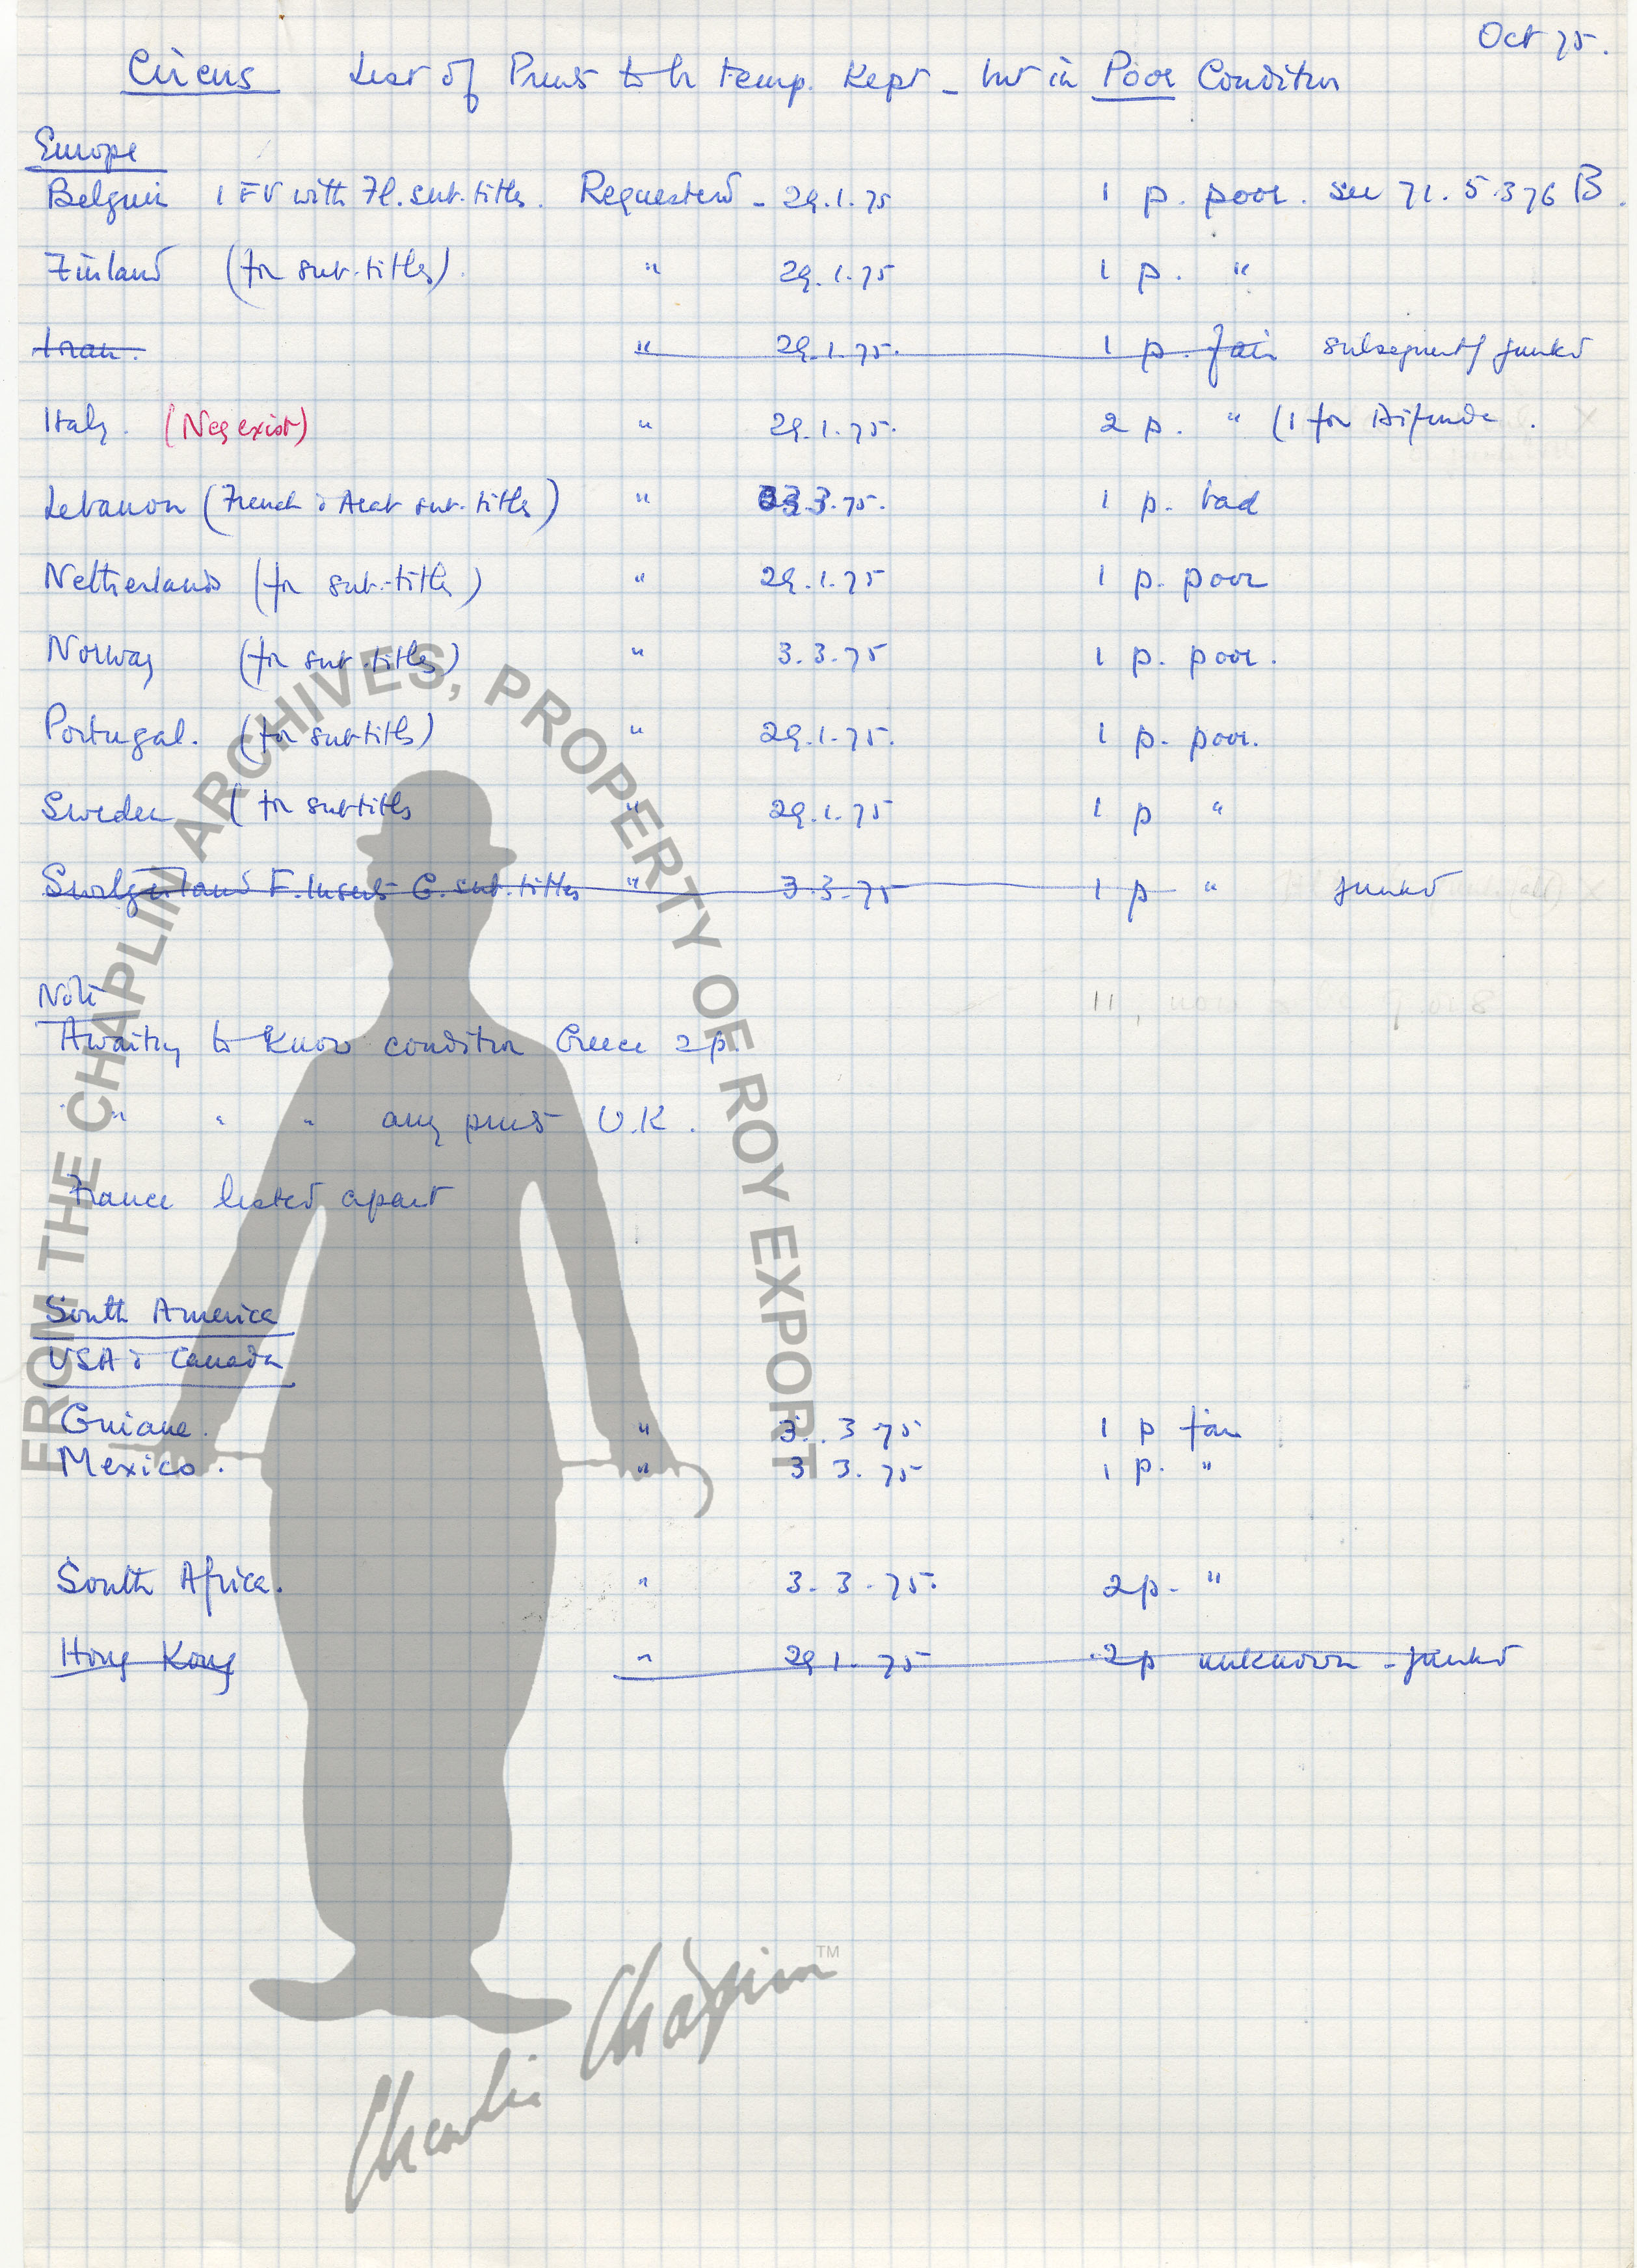 Oct 75.
Circus List of Prints to be temp. kept - but in Poor Condition
Europe
Belguim 1 FV with Fl. sub.titles. Requested - 29.1.75 1 p. poor. see 71.5.376 B.
Finland (for sub-titles). " 29.1.75 1 p. "
Iran. " 29.1.75. 1 p. fair subsequently junked
Italy. (Neg exist) " 29.1.75. 2 p. " (1 for
Lebanon (French & Arab sub-titles) " 3.3.75. 1 p. bad
Netherlands (for sub-titles) " 29.1.75 1 p. poor
Norway (for sub titles) " 3.3.75 1 p. poor.
Portugal. (for subtitls) " 29.1.75. 1 p. poor.
Sweden (for subtitls " 29.1.75 1 p "
Switzerland F. Inserts G. sub.titles " 3.3.75 1 p " junked
Note
Awaiting to know condition Greece 2p.
" " " any prints U.K.
France listed apart
South America
USA & Canada
Guiane. " 3.3.75 1 p fair
Mexico. " 3.3.75 1 p. "
South Africa. " 3.3.75. 2p. "
Hong Kong " 29.1.75 2p unknown - junked
FROM THE CHAPLIN ARCHIVES, PROPERTY OF ROY EXPORT
Charlie Chaplin TM